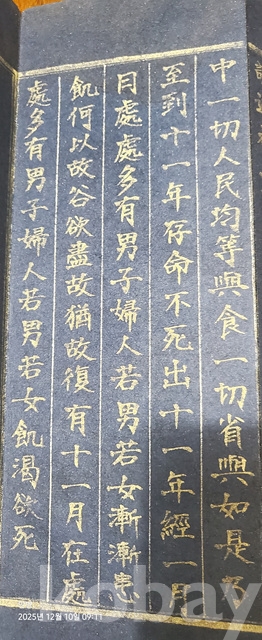 中一切人民均等與食一切省與如是乃
至到十一年存命不死出十一年經一月
日處處多有男子婦人若男若女漸漸患
飢何以故谷欲盡故猶故復有十一月在處
處多有男子婦人若男若女飢渴欲死
kobay
2025년 12월 10일 09:11